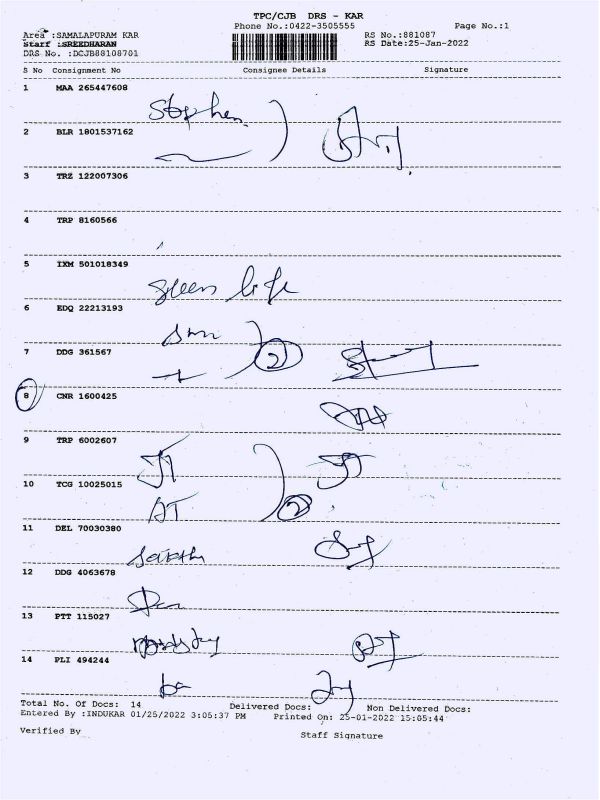 TPC/CJB DRS - KAR
Phone No.:0422-3505555 Page No.:1
Area :SAMALAPURAM KAR RS No.:881087
Staff :SREEDHARAN RS Date:25-Jan-2022
DRS No. :DCJB88108701
S No Consignment No Consignee Details Signature
1 MAA 265447608
Stephen
2 BLR 1801537162
3 TRZ 122007306
4 TRP 8160566
5 IXM 501018349
Green life
6 EDQ 22213193
7 DDG 361567
2
8 CNR 1600425
9 TRP 6002607
10 TCG 10025015
AT 2
11 DEL 70030380
12 DDG 4063678
13 PTT 115027
14 PLI 494244
Total No. Of Docs: 14 Delivered Docs: Non Delivered Docs:
Entered By :INDUKAR 01/25/2022 3:05:37 PM Printed On: 25-01-2022 15:05:44
Verified By Staff Signature